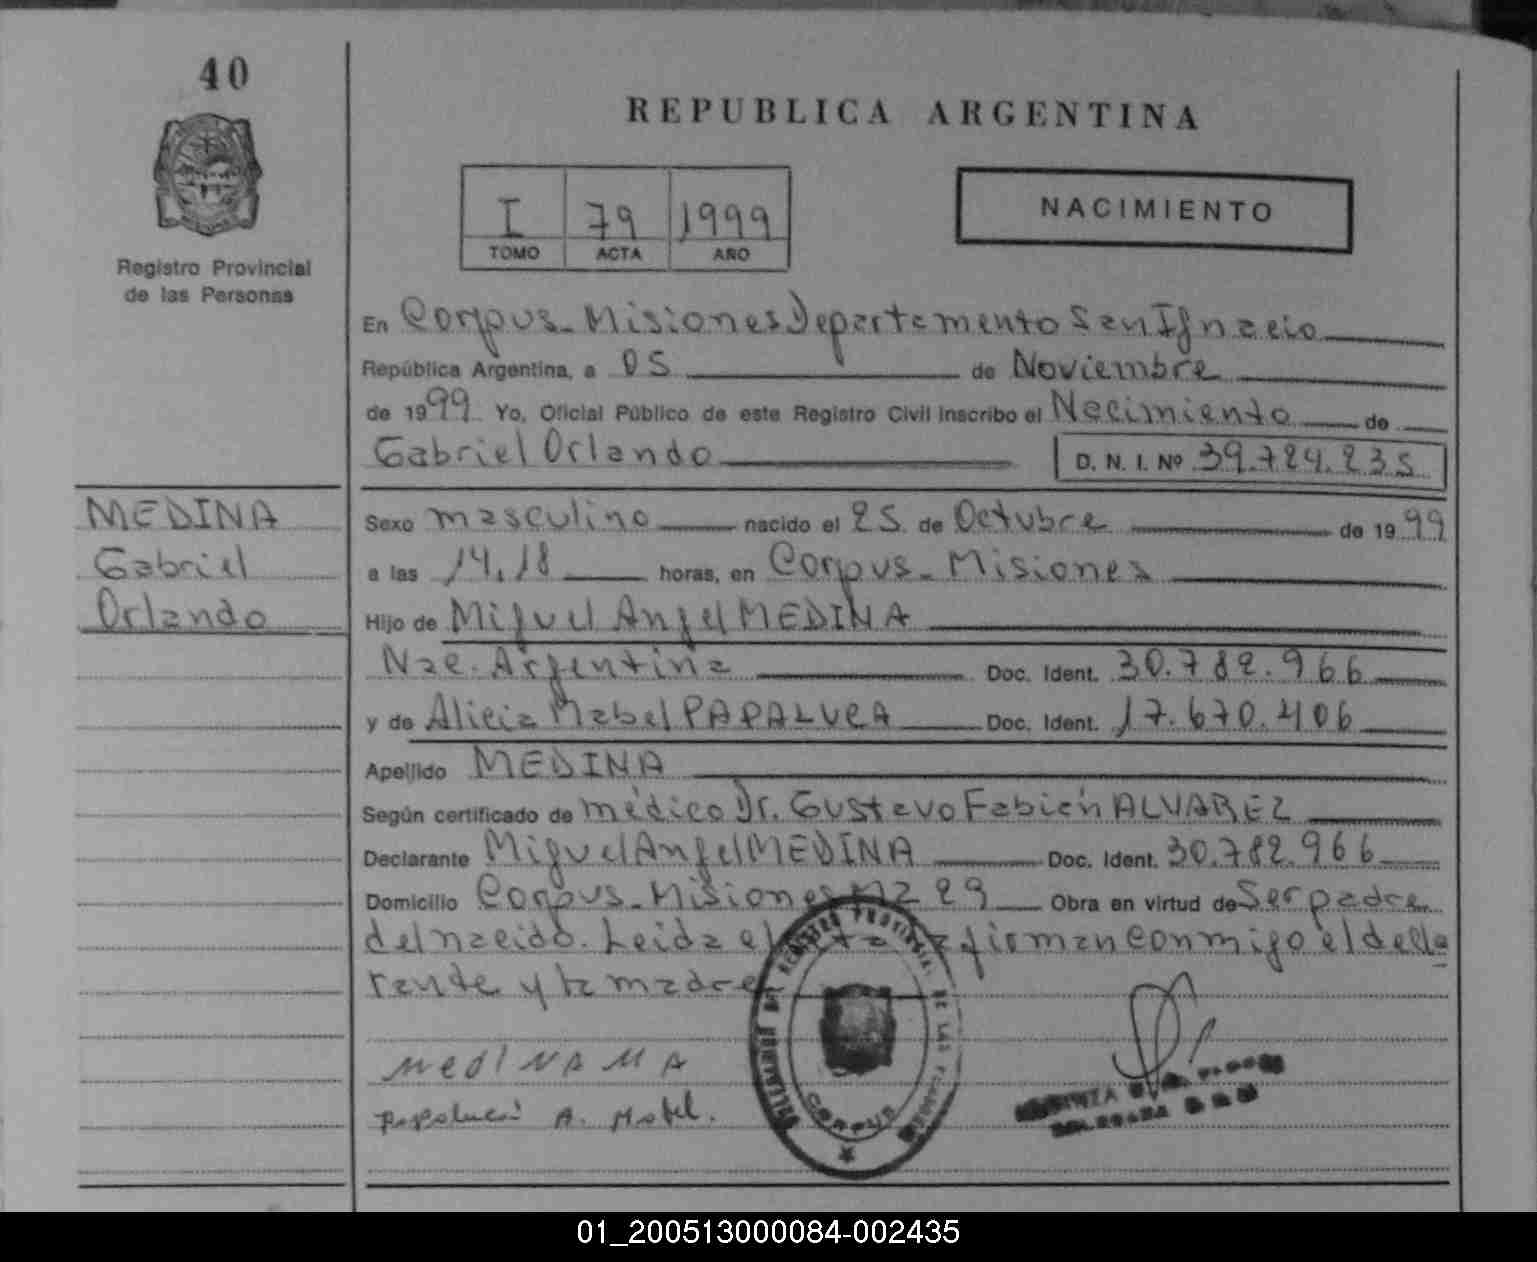 40
Registro Provincial
de las Personas
REPUBLICA ARGENTINA
I 79 1999
TOMO ACTA AÑO
NACIMIENTO
En Corpus - Misiones Departamento San Ignacio
República Argentina, a 05 de Noviembre
de 1999 Yo, Oficial Público de este Registro Civil inscribo el Nacimiento de
Gabriel Orlando D. N. I. Nº 39.724.235
MEDINA
Gabriel
Orlando
Sexo masculino nacido el 25 de Octubre de 1999
a las 14,18 horas, en Corpus - Misiones
Hijo de Miguel Angel MEDINA
Nac. Argentina Doc. Ident. 30.782.966
y de Alicia Mabel PAPALUCA Doc. Ident. 17.670.406
Apellido MEDINA
Según certificado de médico Dr. Gustavo Fabián ALVAREZ
Declarante Miguel Angel MEDINA Doc. Ident. 30.782.966
Domicilio Corpus - Misiones Mz 29 Obra en virtud de Ser padre
del nacido. Leida el acta la firman conmigo el decla
rante y la madre
MEDINA M A
Papaluca A. Mabel.
DEL REGISTRO PROVINCIAL DE LAS PERSONAS
CORPUS
01_200513000084-002435